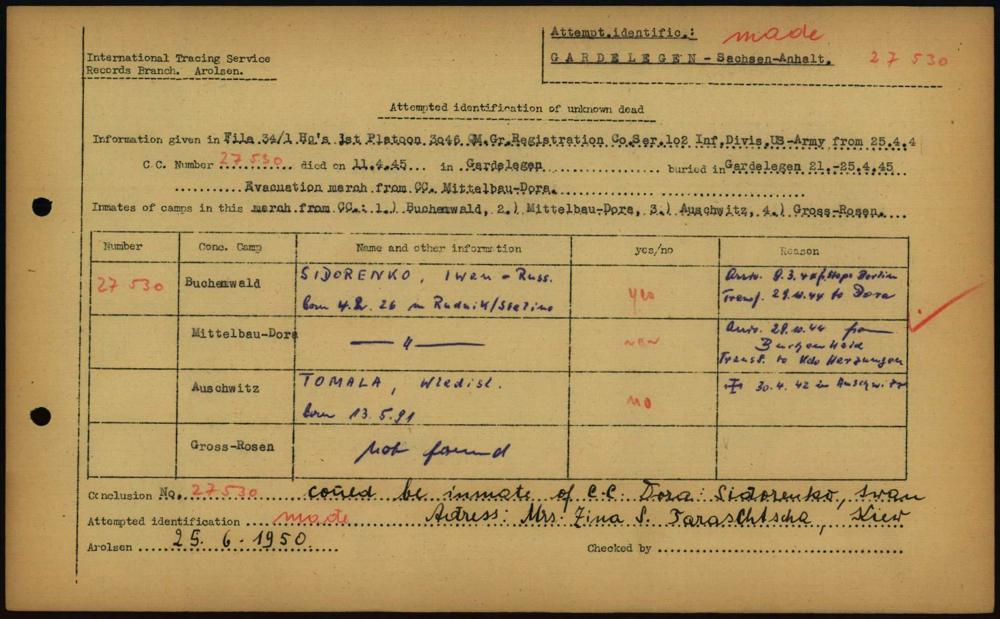 Attempt.identific.: made
International Tracing Service
Records Branch. Arolsen.
GARDELEGEN - Sachsen-Anhalt. 27 530
Attempted identification of unknown dead
Information given in File 34/1 Hq's 1st Platoon 3046 QM.Gr.Registration Co.Ser.102 Inf.Divis.US-Army from 25.4.4
C.C. Number 27 530 died on 11.4.45 in Gardelegen buried in Gardelegen 21.-25.4.45
Evacuation march from CC. Mittelbau-Dora.
Inmates of camps in this march from CC.: 1.) Buchenwald, 2.) Mittelbau-Dora, 3.) Auschwitz, 4.) Gross-Rosen.
Number Conc. Camp Name and other information yes/no Reason
27 530 Buchenwald SIDORENKO, Iwan - Russ. yes
born 4.2.26 in Rudnik/Stalino
Transf. 29.10.44 to Dora
Mittelbau-Dora — " —
Transf. to Kdo Herzungen
Auschwitz TOMALA, Wladisl. no 30.4.42 in Auschwitz
born 13.5.91
Gross-Rosen not found
Conclusion No. 27530 could be inmate of C.C. Dora: Sidorenko, Iwan
Attempted identification made Adress: Mrs. Zina S. Taraschtscha, Kiew
Arolsen 25.6.1950 Checked by